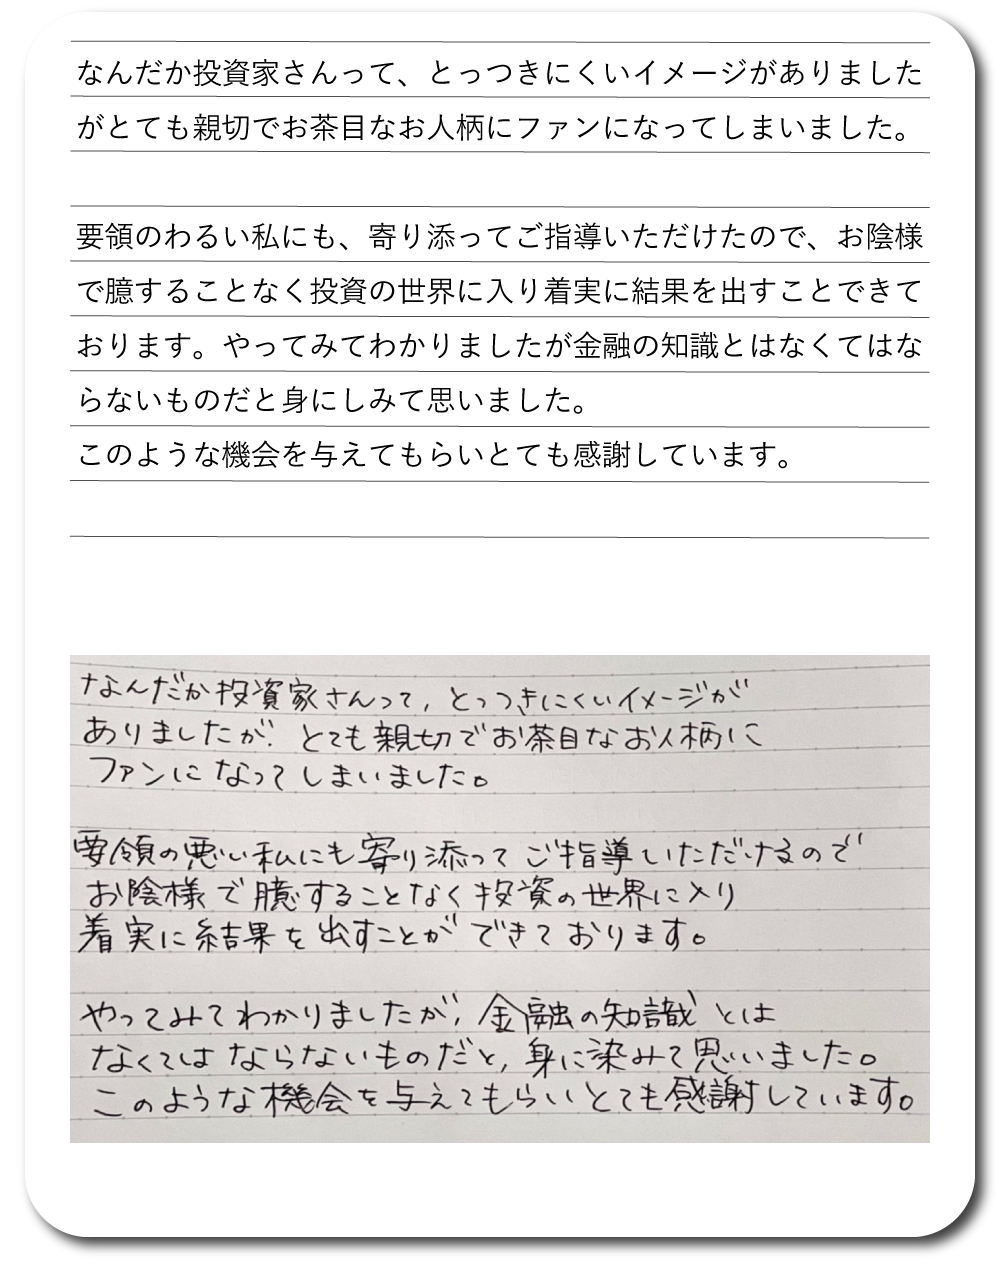 なんだか投資家さんって、とっつきにくいイメージがありました
がとても親切でお茶目なお人柄にファンになってしまいました。
要領のわるい私にも、寄り添ってご指導いただけたので、お陰様
で臆することなく投資の世界に入り着実に結果を出すことできて
おります。やってみてわかりましたが金融の知識とはなくてはな
らないものだと身にしみて思いました。
このような機会を与えてもらいとても感謝しています。
なんだか投資家さんって、とっつきにくいイメージが
ありましたが、とても親切でお茶目なお人柄に
ファンになってしまいました。
要領の悪い私にも寄り添ってご指導いただけるので
お陰様で臆することなく投資の世界に入り
着実に結果を出すことができております。
やってみてわかりましたが、金融の知識とは
なくてはならないものだと、身に染みて思いました。
このような機会を与えてもらいとても感謝しています。